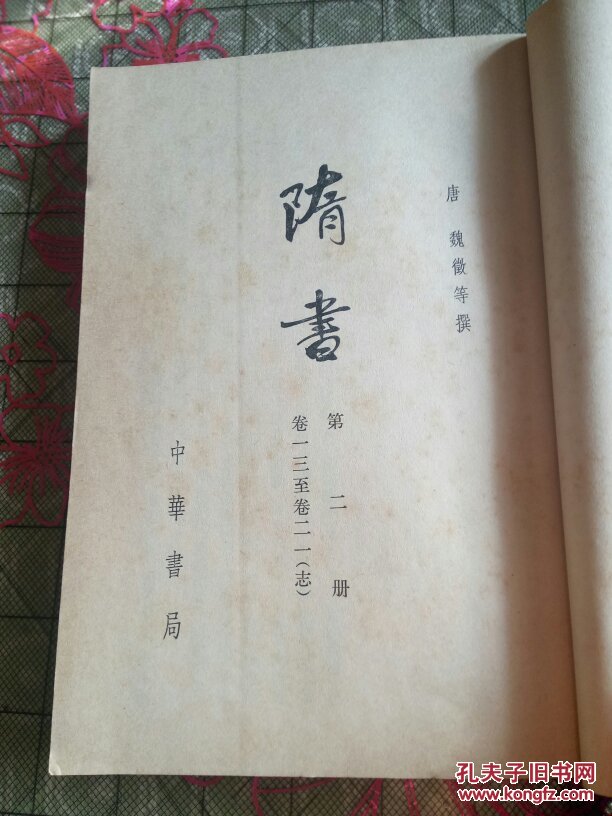 唐 魏徵等撰
隋書
第二册
卷一三至卷二一(志)
中華書局
孔夫子旧书网
www.kongfz.com